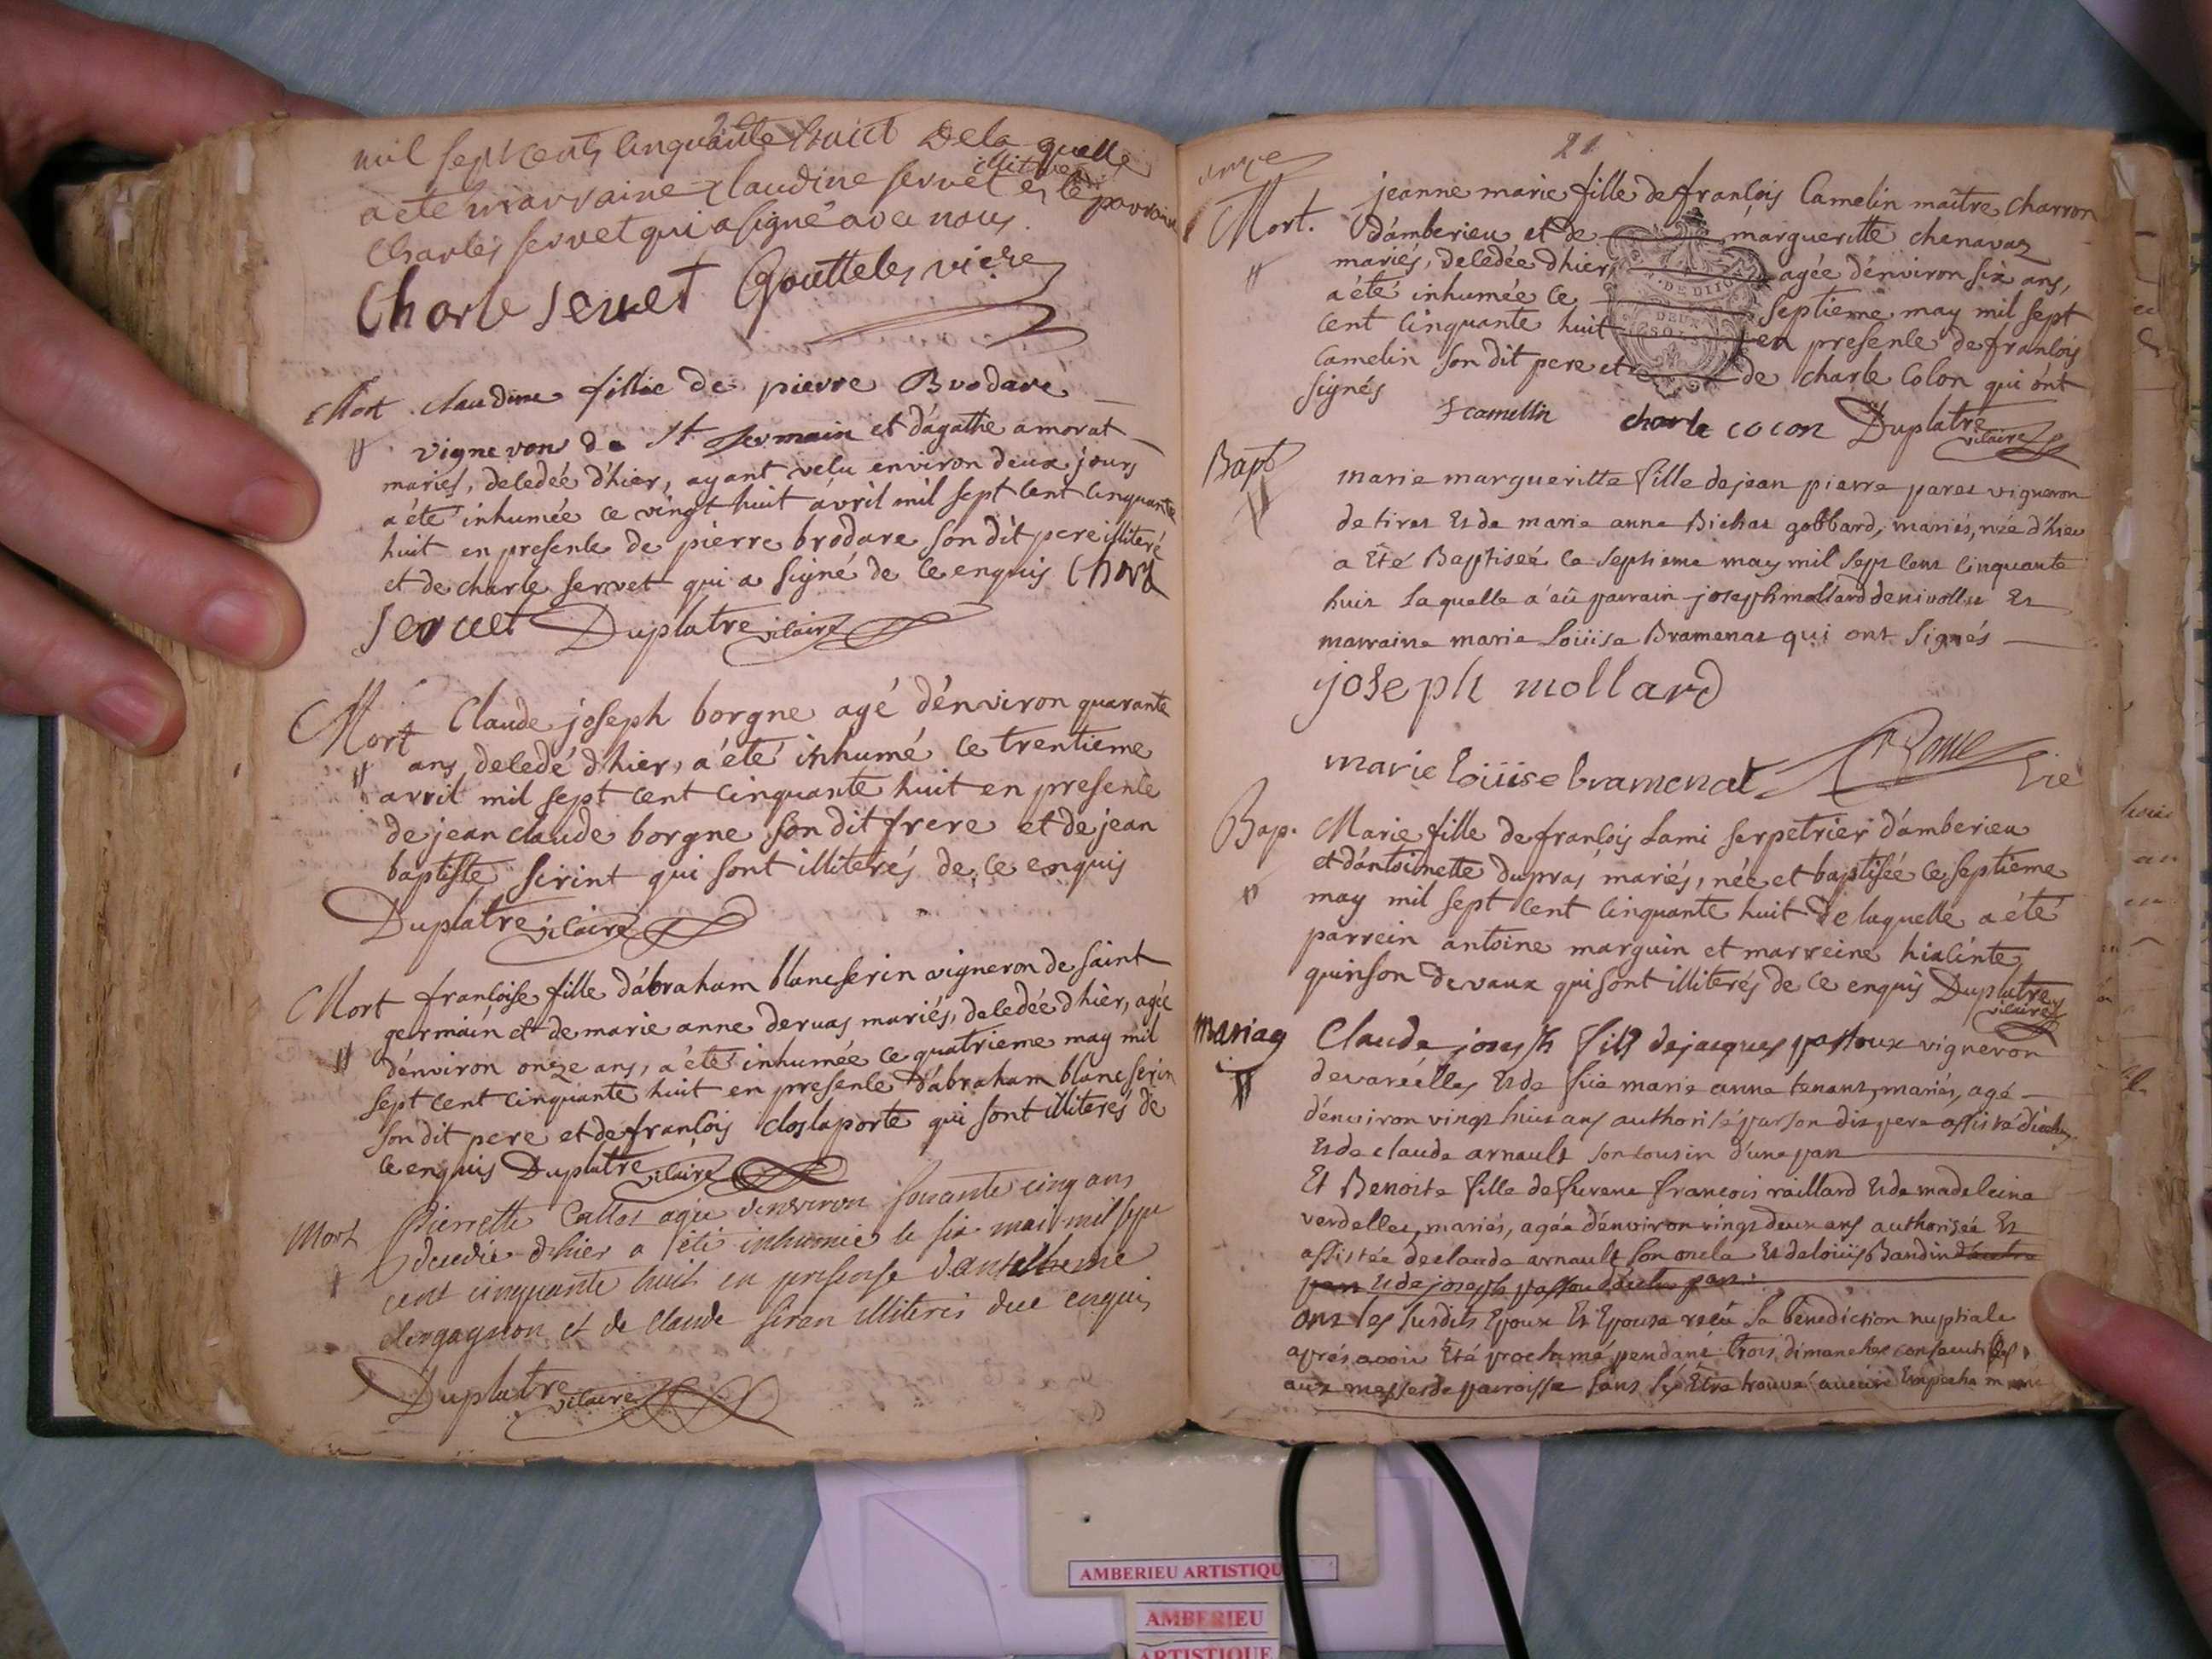 mil sept cents cinquante huict De la quelle
a ete marraine claudine servet illiteree et le parrain
Charles servet qui a signé avec nous.
Charle servet Goutteles vicre
Mort claudine fillie de pierre Brodare
vigneron de St Germain et d'agathe amorat
mariés, decedée d'hier, ayant vecu environ deux jours
a été inhumée ce vingt huit avril mil sept cent cinquante
huit en presence de pierre brodare son dit pere illiteré
et de charle servet qui a signé de ce enquis Charle
servet Duplatre vicaire
Mort Claude joseph borgne agé d'environ quarante
ans decedé d'hier, a été inhumé ce trentieme
avril mil sept cent cinquante huit en presence
de jean claude borgne son dit frere et de jean
baptiste sirint qui sont illiterés de ce enquis
Duplatre vicaire
Mort francoise fille d'abraham blancserin vigneron de saint
germain et de marie anne dervas mariés, decedée d'hier, agée
d'environ onze ans, a été inhumée ce quatrieme may mil
sept cent cinquante huit en presence d'abraham blancserin
son dit pere et de francois closlaporte qui sont illiterés de
ce enquis Duplatre vicaire
Mort Pierrette Callot agée d'environ soixante cinq ans
decedée d'hier a été inhumée le six mai mil sept
cent cinquante huit en presense d'antelheme
dergagnon et de claude siran illiteris de ce enquis
Duplatre vicaire
21
Mort. jeanne marie fille de francois Camelin maitre charron
d'amberieu et de margueritte chenavaz
mariés, decedée d'hier, agée d'environ six ans,
DE DIJON
a été inhumée ce septieme may mil sept
DEUX
SOLS
cent cinquante huit en presence de francois
Camelin son dit pere et de charle Colon qui ont
signés
f camelin charle cocon Duplatre vicaire
Bapt marie margueritte fille de jean pierre paret vigneron
de tiret et de marie anne Bichat gobbard, mariés, née d'hier
a Eté Baptiseé ce septieme may mil sept cent cinquante
huit laquelle a eü parrain joseph mollard de nivollet Et
marraine marie Loüise Bramenat qui ont signés
joseph mollard
marie loüise bramenat vic
Bap. Marie fille de francois Lami serpetrier d'amberieu
et d'antoinette dupras mariés, née et baptisée ce septieme
may mil sept cent cinquante huit de laquelle a été
parrein antoine marguin et marreine hiacinte
quinson de vaux qui sont illiterés de ce enquis Duplatre
vicaire
Mariag Claude joseph fils de jacques passoux vigneron
de vareilles Et de füe marie anne tenant, mariés, agé
d'environ vingt huit ans authorisé par son dit pere assisté d'icelui
Et de claude arnault son cousin d'une part
Et Benoite fille de francois raillard Et de madeleine
verdellet, mariés, agée d'environ vingt deux ans authorisée Et
assistée de claude arnault son oncle Et de loüis Bandin d'autre
part Et de joseph passou d'autre part.
ont les susdits Epoux Et Epouse reçû la bénédiction nuptiale
aprés avoir Eté proclamé pendant trois dimanches consecutifs
aux messes de parroisse sans s'y Etre trouvé aucun Empechement
AMBERIEU ARTISTIQU
AMBERIEU
ARTISTIQUE